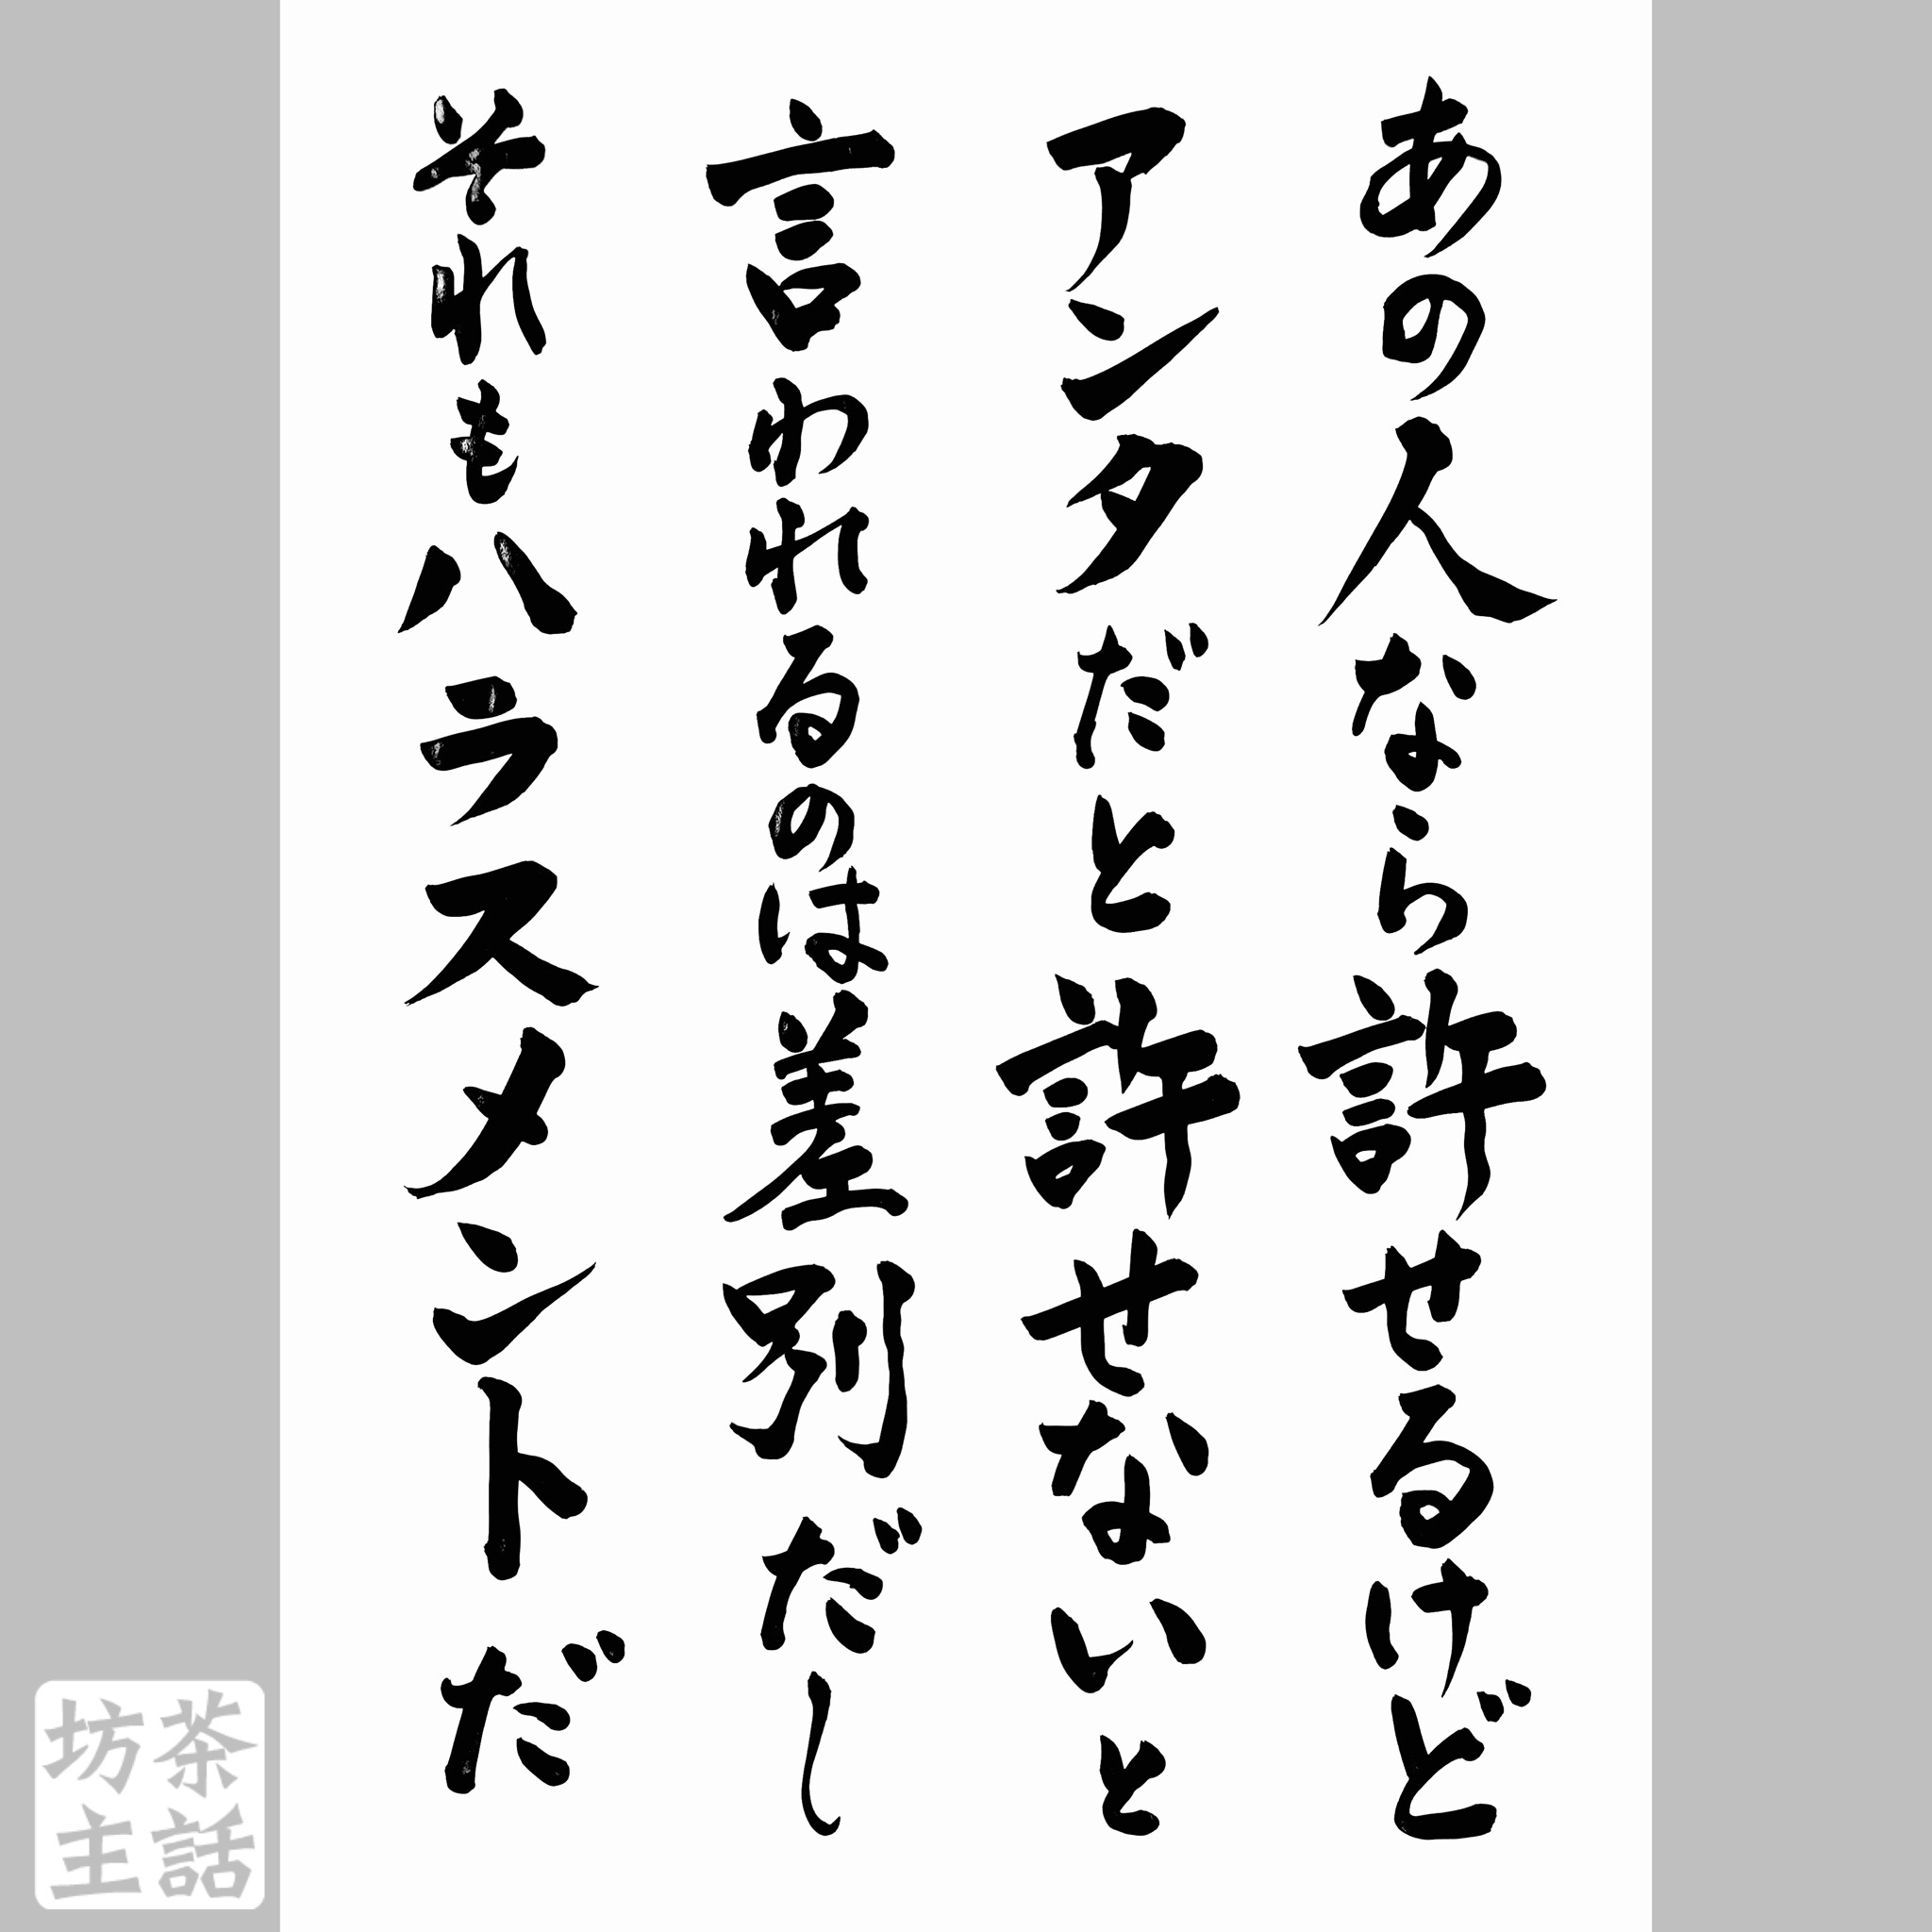 あの人なら許せるけど
アンタだと許せないと
言われるのは差別だし
それもハラスメントだ
茶話
坊主